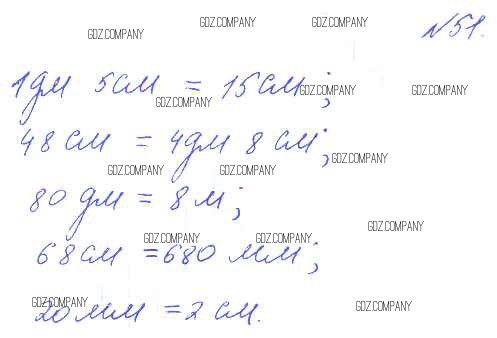 GDZ.COMPANY GDZ.COMPANY GDZ.COMPANY №51.
1дм 5см = 15см; GDZ.COMPANY GDZ.COMPANY
GDZ.COMPANY
48 см = 4дм 8 см; GDZ.COMPANY
GDZ.COMPANY GDZ.COMPANY
80 дм = 8 м;
GDZ.COMPANY
GDZ.COMPANY GDZ.COMPANY
68см = 680 мм;
GDZ.COMPANY GDZ.COMPANY
20 мм = 2 см.